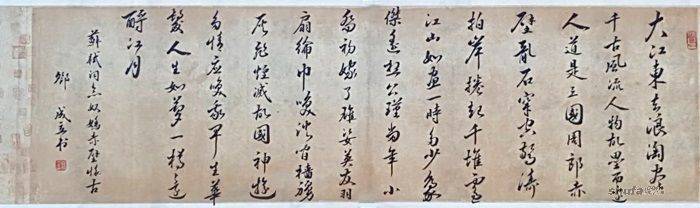 大江東去浪淘盡
千古風流人物故壘西邊
人道是三國周郎赤
壁亂石穿空驚濤
拍岸捲起千堆雪
江山如畫一時多少豪
傑遙想公瑾當年小
喬初嫁了雄姿英發羽
扇綸巾笑談間檣櫓
灰飛煙滅故國神遊
多情應笑我早生華
髮人生如夢一樽還
酹江月
蘇軾詞念奴嬌赤壁懷古
成書